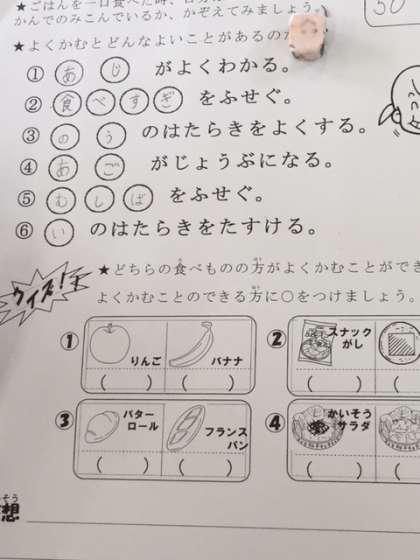 ★ごはんを一口食べた時、自分が
かんでのみこんでいるか、かぞえてみましょう。
50
★よくかむとどんなよいことがあるのか
① あ じ がよくわかる。
② 食 べ す ぎ をふせぐ。
③ の う のはたらきをよくする。
④ あ ご がじょうぶになる。
⑤ む し ば をふせぐ。
⑥ い のはたらきをたすける。
クイズ!
★どちらの食べものの方がよくかむことができ
よくかむことのできる方に○をつけましょう。
① りんご バナナ ② スナックがし
( ) ( ) ( ) (
③ バターロール フランスパン ④ かいそうサラダ
( ) ( ) ( ) (
想